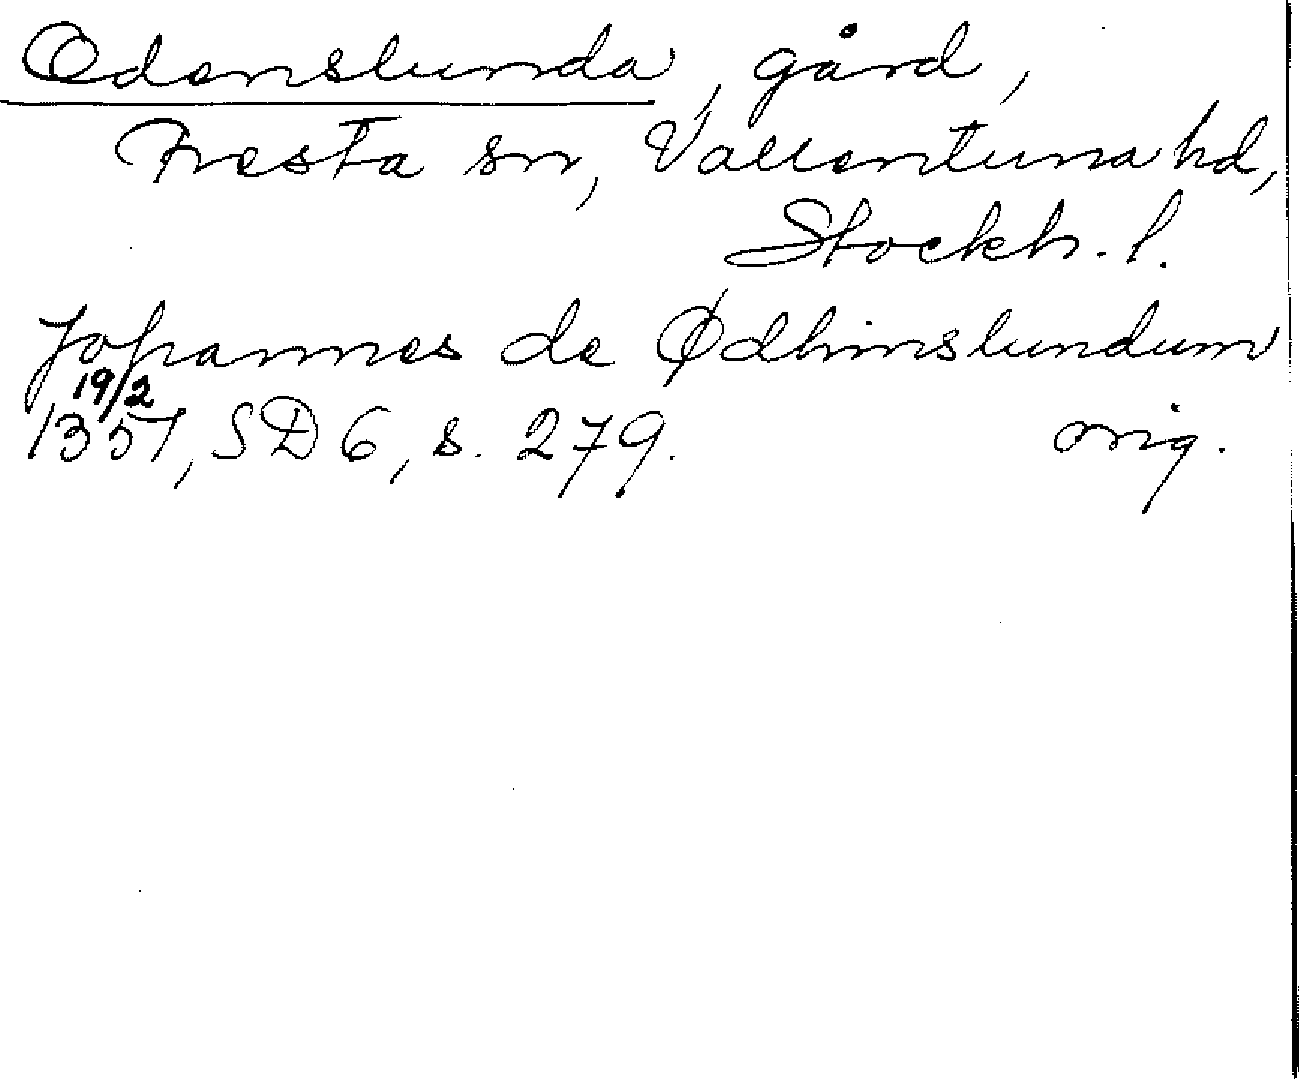 Odenslunda, gård,
Fresta sn, Vallentuna hd,
Stockh. l.
Johannes de Ødhinslundum
19/2
1351, SD 6, s. 279. orig.